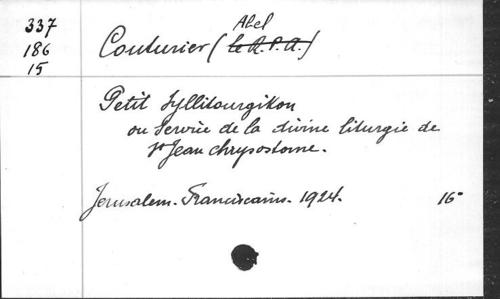 337
186
15
Abel
Couturier (le R. P. A.)
Petit Syllitourgikon
ou Service de la divine liturgie de
St Jean chrysostome.
Jerusalem. Franciscains. 1924. 16°